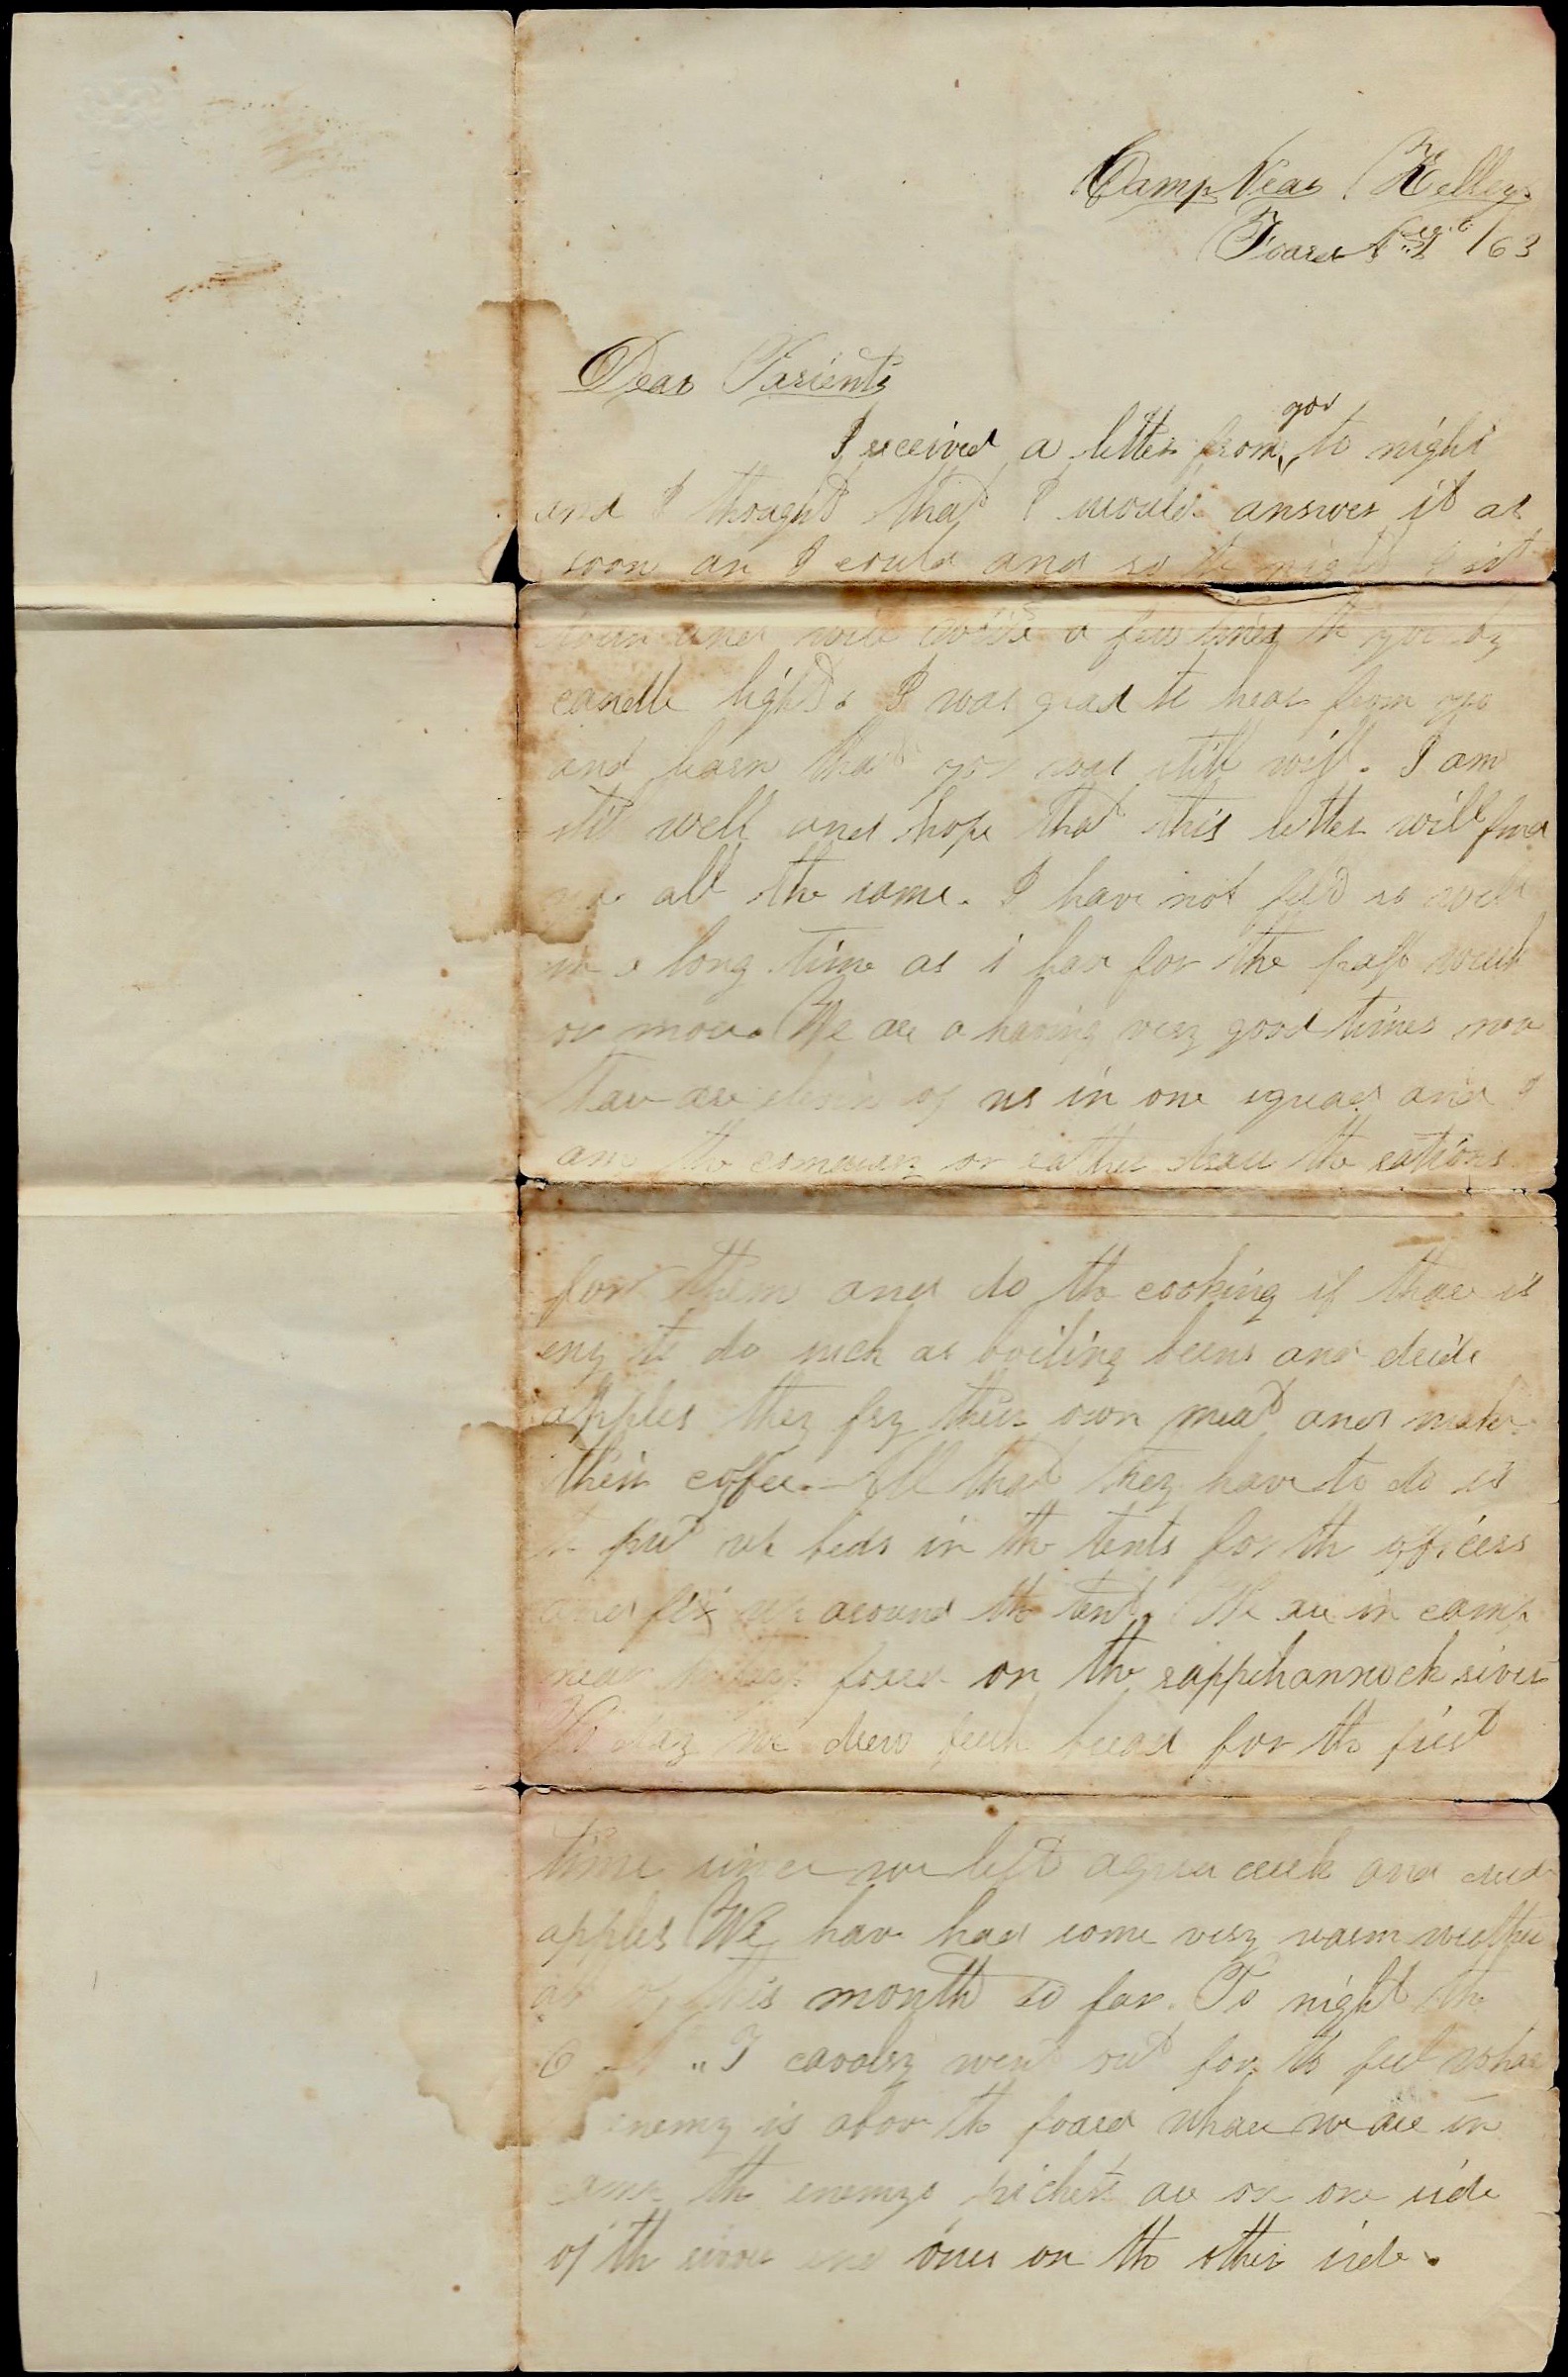 Camp Near Kelleys
Foard Aug 6 /63
Dear Parients
you
I received a letter from to night
and I thought that I would answer it as
soon as I could and so to night I sit
down and will write a few lines to you by
candle light. I was glad to hear from you
and learn that you was still well. I am
still well and hope that this letter will find
you all the same. I have not felt so well
in a long time as i hav for the past week
or more. We are a having very good times now
thare are eleven of us in one squad and I
am the comissary or rather draw the rations
for them and do the cooking if thare is
eny to do such as boiling beens and dride
apples they fry their own meat and make
their coffee. All that they have to do is
to put up beds in the tents for the officers
and fix up around the tent. We are in camp
near foard on the rappehannock river
To day we drew bread for the first
time since we left aquia creek and dride
apples We hav had some very warm weather
all of this month so far. To night the
6 cavalry went out for to feel whare
enemy is abov the foard whare we are in
camp the enemys pickets are on one side
of the river and ours on the other side.